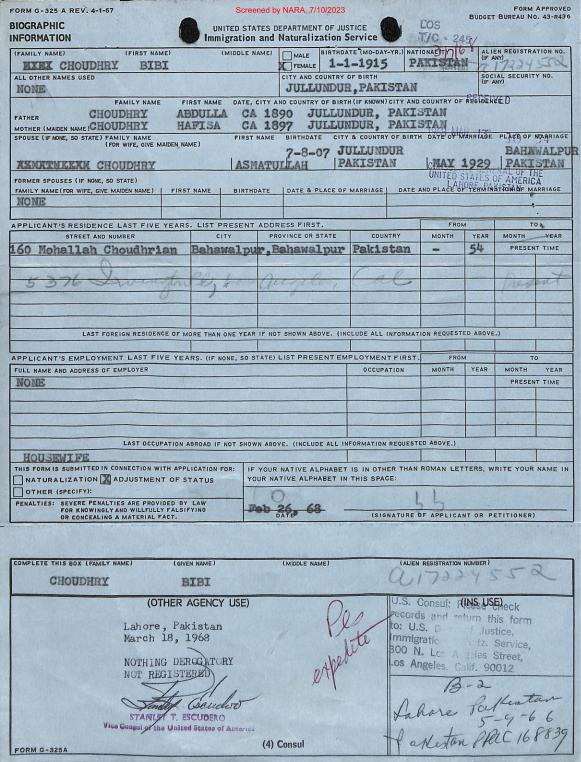 Screened by NARA, 7/10/2023
FORM G-325 A REV. 4-1-67
FORM APPROVED
BUDGET BUREAU No. 43-R436
BIOGRAPHIC
INFORMATION
UNITED STATES DEPARTMENT OF JUSTICE
Immigration and Naturalization Service
LOS
T/C - 245
(FAMILY NAME) (FIRST NAME) (MIDDLE NAME) MALE FEMALE BIRTHDATE (MO-DAY-YR.) NATIONALITY ALIEN REGISTRATION NO. (IF ANY)
CHOUDHRY BIBI X 1-1-1915 PAKISTAN A17224552
ALL OTHER NAMES USED CITY AND COUNTRY OF BIRTH SOCIAL SECURITY NO. (IF ANY)
NONE JULLUNDUR,PAKISTAN
FAMILY NAME FIRST NAME DATE, CITY AND COUNTRY OF BIRTH (IF KNOWN) CITY AND COUNTRY OF RESIDENCE
FATHER CHOUDHRY ABDULLA CA 1890 JULLUNDUR, PAKISTAN
MOTHER (MAIDEN NAME) CHOUDHRY HAFISA CA 1897 JULLUNDUR, PAKISTAN
SPOUSE (IF NONE, SO STATE) FAMILY NAME (FOR WIFE, GIVE MAIDEN NAME) FIRST NAME BIRTHDATE CITY & COUNTRY OF BIRTH DATE OF MARRIAGE PLACE OF MARRIAGE
7-8-07 JULLUNDUR BAHNWALPUR
CHOUDHRY ASMATULLAH PAKISTAN MAY 1929 PAKISTAN
UNITED STATES OF AMERICA
LAHORE, PAKISTAN
FORMER SPOUSES (IF NONE, SO STATE)
FAMILY NAME (FOR WIFE, GIVE MAIDEN NAME) FIRST NAME BIRTHDATE DATE & PLACE OF MARRIAGE DATE AND PLACE OF TERMINATION OF MARRIAGE
NONE
APPLICANT'S RESIDENCE LAST FIVE YEARS. LIST PRESENT ADDRESS FIRST. FROM TO
STREET AND NUMBER CITY PROVINCE OR STATE COUNTRY MONTH YEAR MONTH YEAR
160 Mohallah Choudhrian Bahawalpur,Bahawalpur Pakistan - 54 PRESENT TIME
5376 Los Angeles, Cal Present
LAST FOREIGN RESIDENCE OF MORE THAN ONE YEAR IF NOT SHOWN ABOVE. (INCLUDE ALL INFORMATION REQUESTED ABOVE.)
APPLICANT'S EMPLOYMENT LAST FIVE YEARS. (IF NONE, SO STATE) LIST PRESENT EMPLOYMENT FIRST. FROM TO
FULL NAME AND ADDRESS OF EMPLOYER OCCUPATION MONTH YEAR MONTH YEAR
NONE PRESENT TIME
LAST OCCUPATION ABROAD IF NOT SHOWN ABOVE. (INCLUDE ALL INFORMATION REQUESTED ABOVE.)
HOUSEWIFE
THIS FORM IS SUBMITTED IN CONNECTION WITH APPLICATION FOR:
NATURALIZATION X ADJUSTMENT OF STATUS
OTHER (SPECIFY):
IF YOUR NATIVE ALPHABET IS IN OTHER THAN ROMAN LETTERS, WRITE YOUR NAME IN
YOUR NATIVE ALPHABET IN THIS SPACE:
PENALTIES: SEVERE PENALTIES ARE PROVIDED BY LAW
FOR KNOWINGLY AND WILLFULLY FALSIFYING
OR CONCEALING A MATERIAL FACT.
Feb 26, 68
DATE
(SIGNATURE OF APPLICANT OR PETITIONER)
COMPLETE THIS BOX (FAMILY NAME) (GIVEN NAME) (MIDDLE NAME) (ALIEN REGISTRATION NUMBER)
CHOUDHRY BIBI A17224552
(OTHER AGENCY USE)
Lahore, Pakistan
March 18, 1968
NOTHING DEROGATORY
NOT REGISTERED
STANLEY T. ESCUDERO
Vice Consul of the United States of America
expedite
(INS USE)
U.S. Consul: Please check
records and return this form
to: U.S. Justice,
Service,
300 N. Los Angeles Street,
Los Angeles, Calif. 90012
B-2
Lahore Pakistan
5-9-66
Pakistan 168839
(4) Consul
FORM G-325A